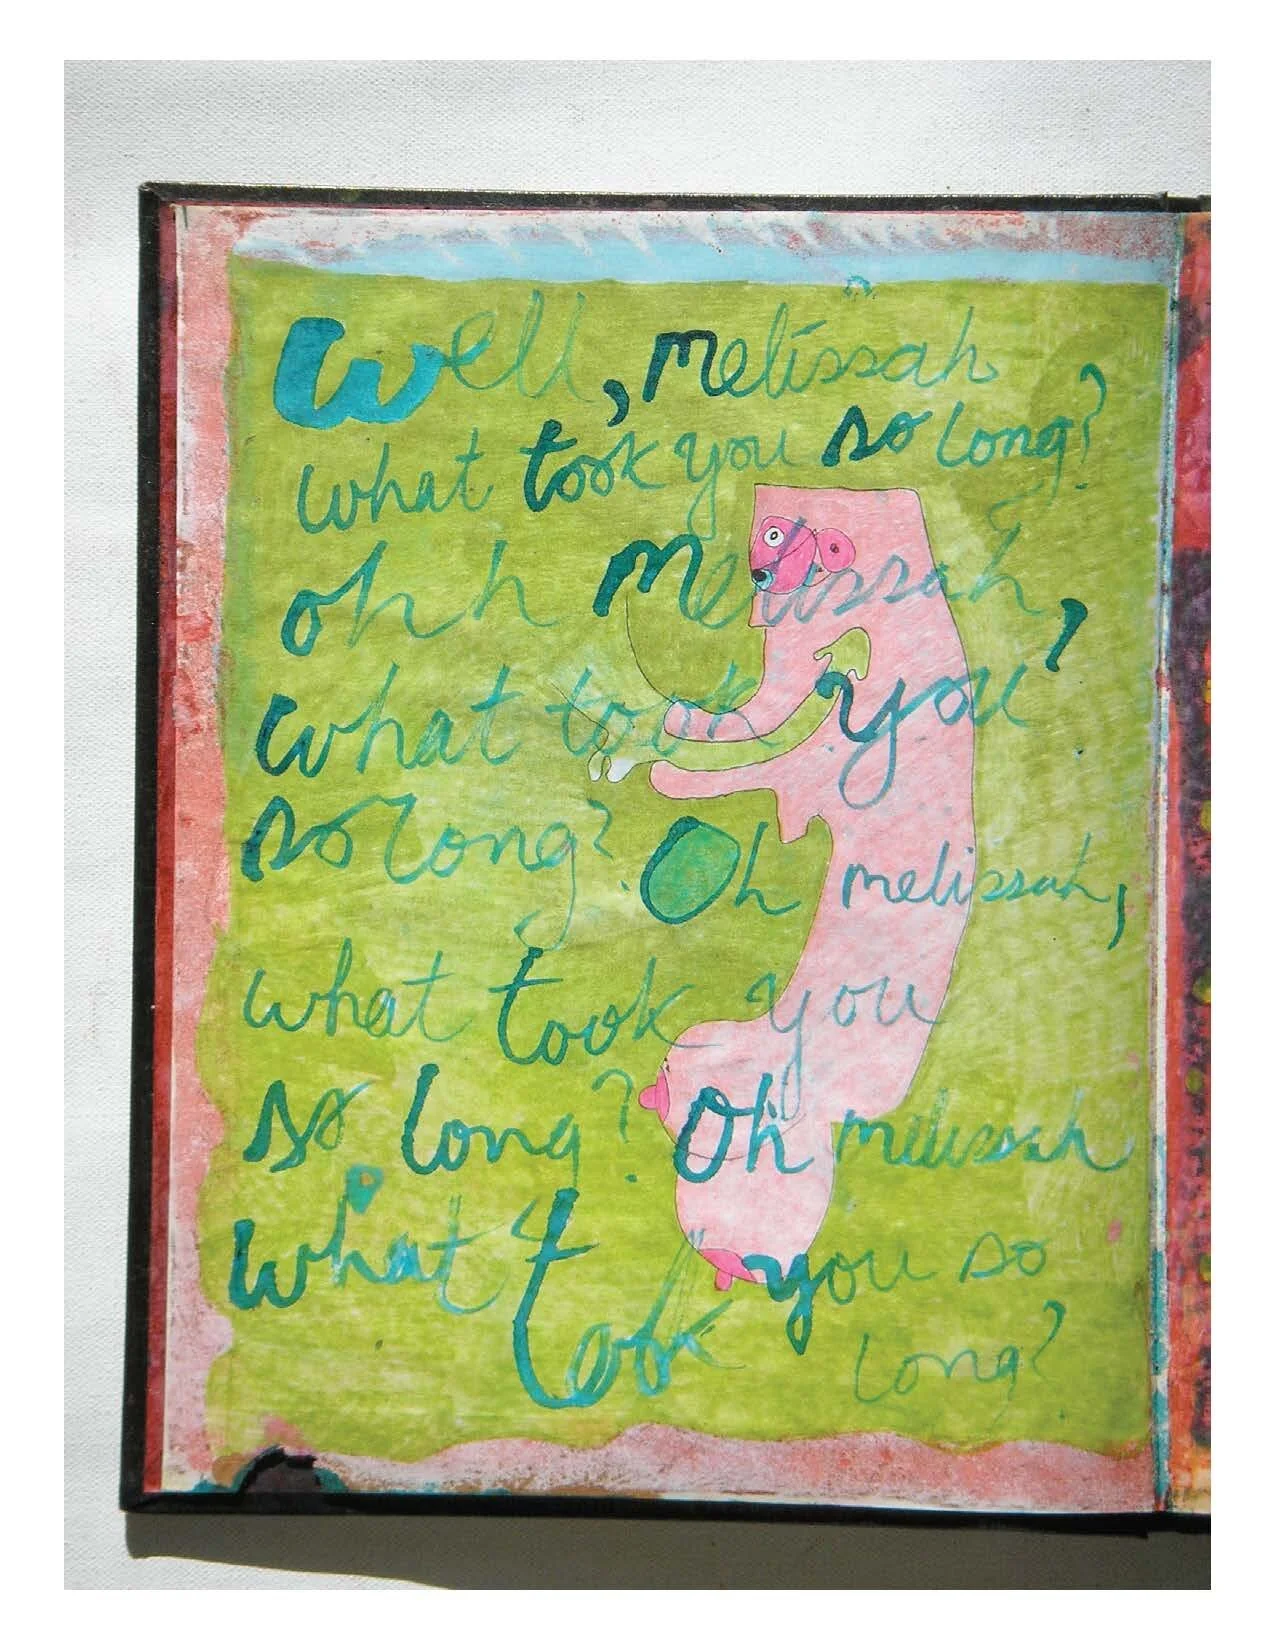 Well, melissah
what took you so long?
ohh melissah,
what took you
so long? Oh melissah,
what took you
so long? Oh melissah
what took you so
long?